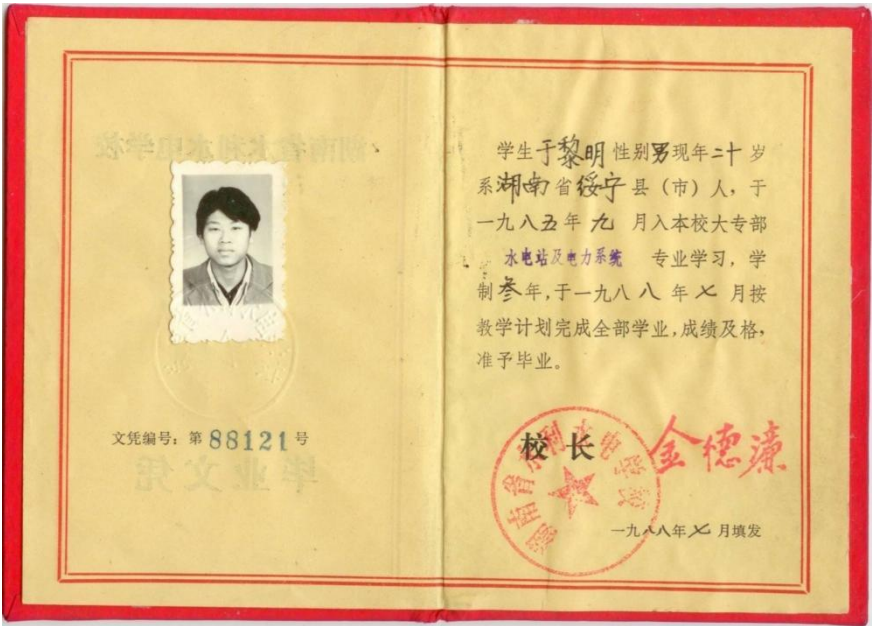 文凭编号：第88121号
学生于黎明性别男现年二十岁
系湖南省绥宁县（市）人，于
一九八五年九月入本校大专部
水电站及电力系统 专业学习，学
制叁年，于一九八八年七月按
教学计划完成全部学业，成绩及格，
准予毕业。
校长 金德濂
湖南省水利水电学校
一九八八年七月填发